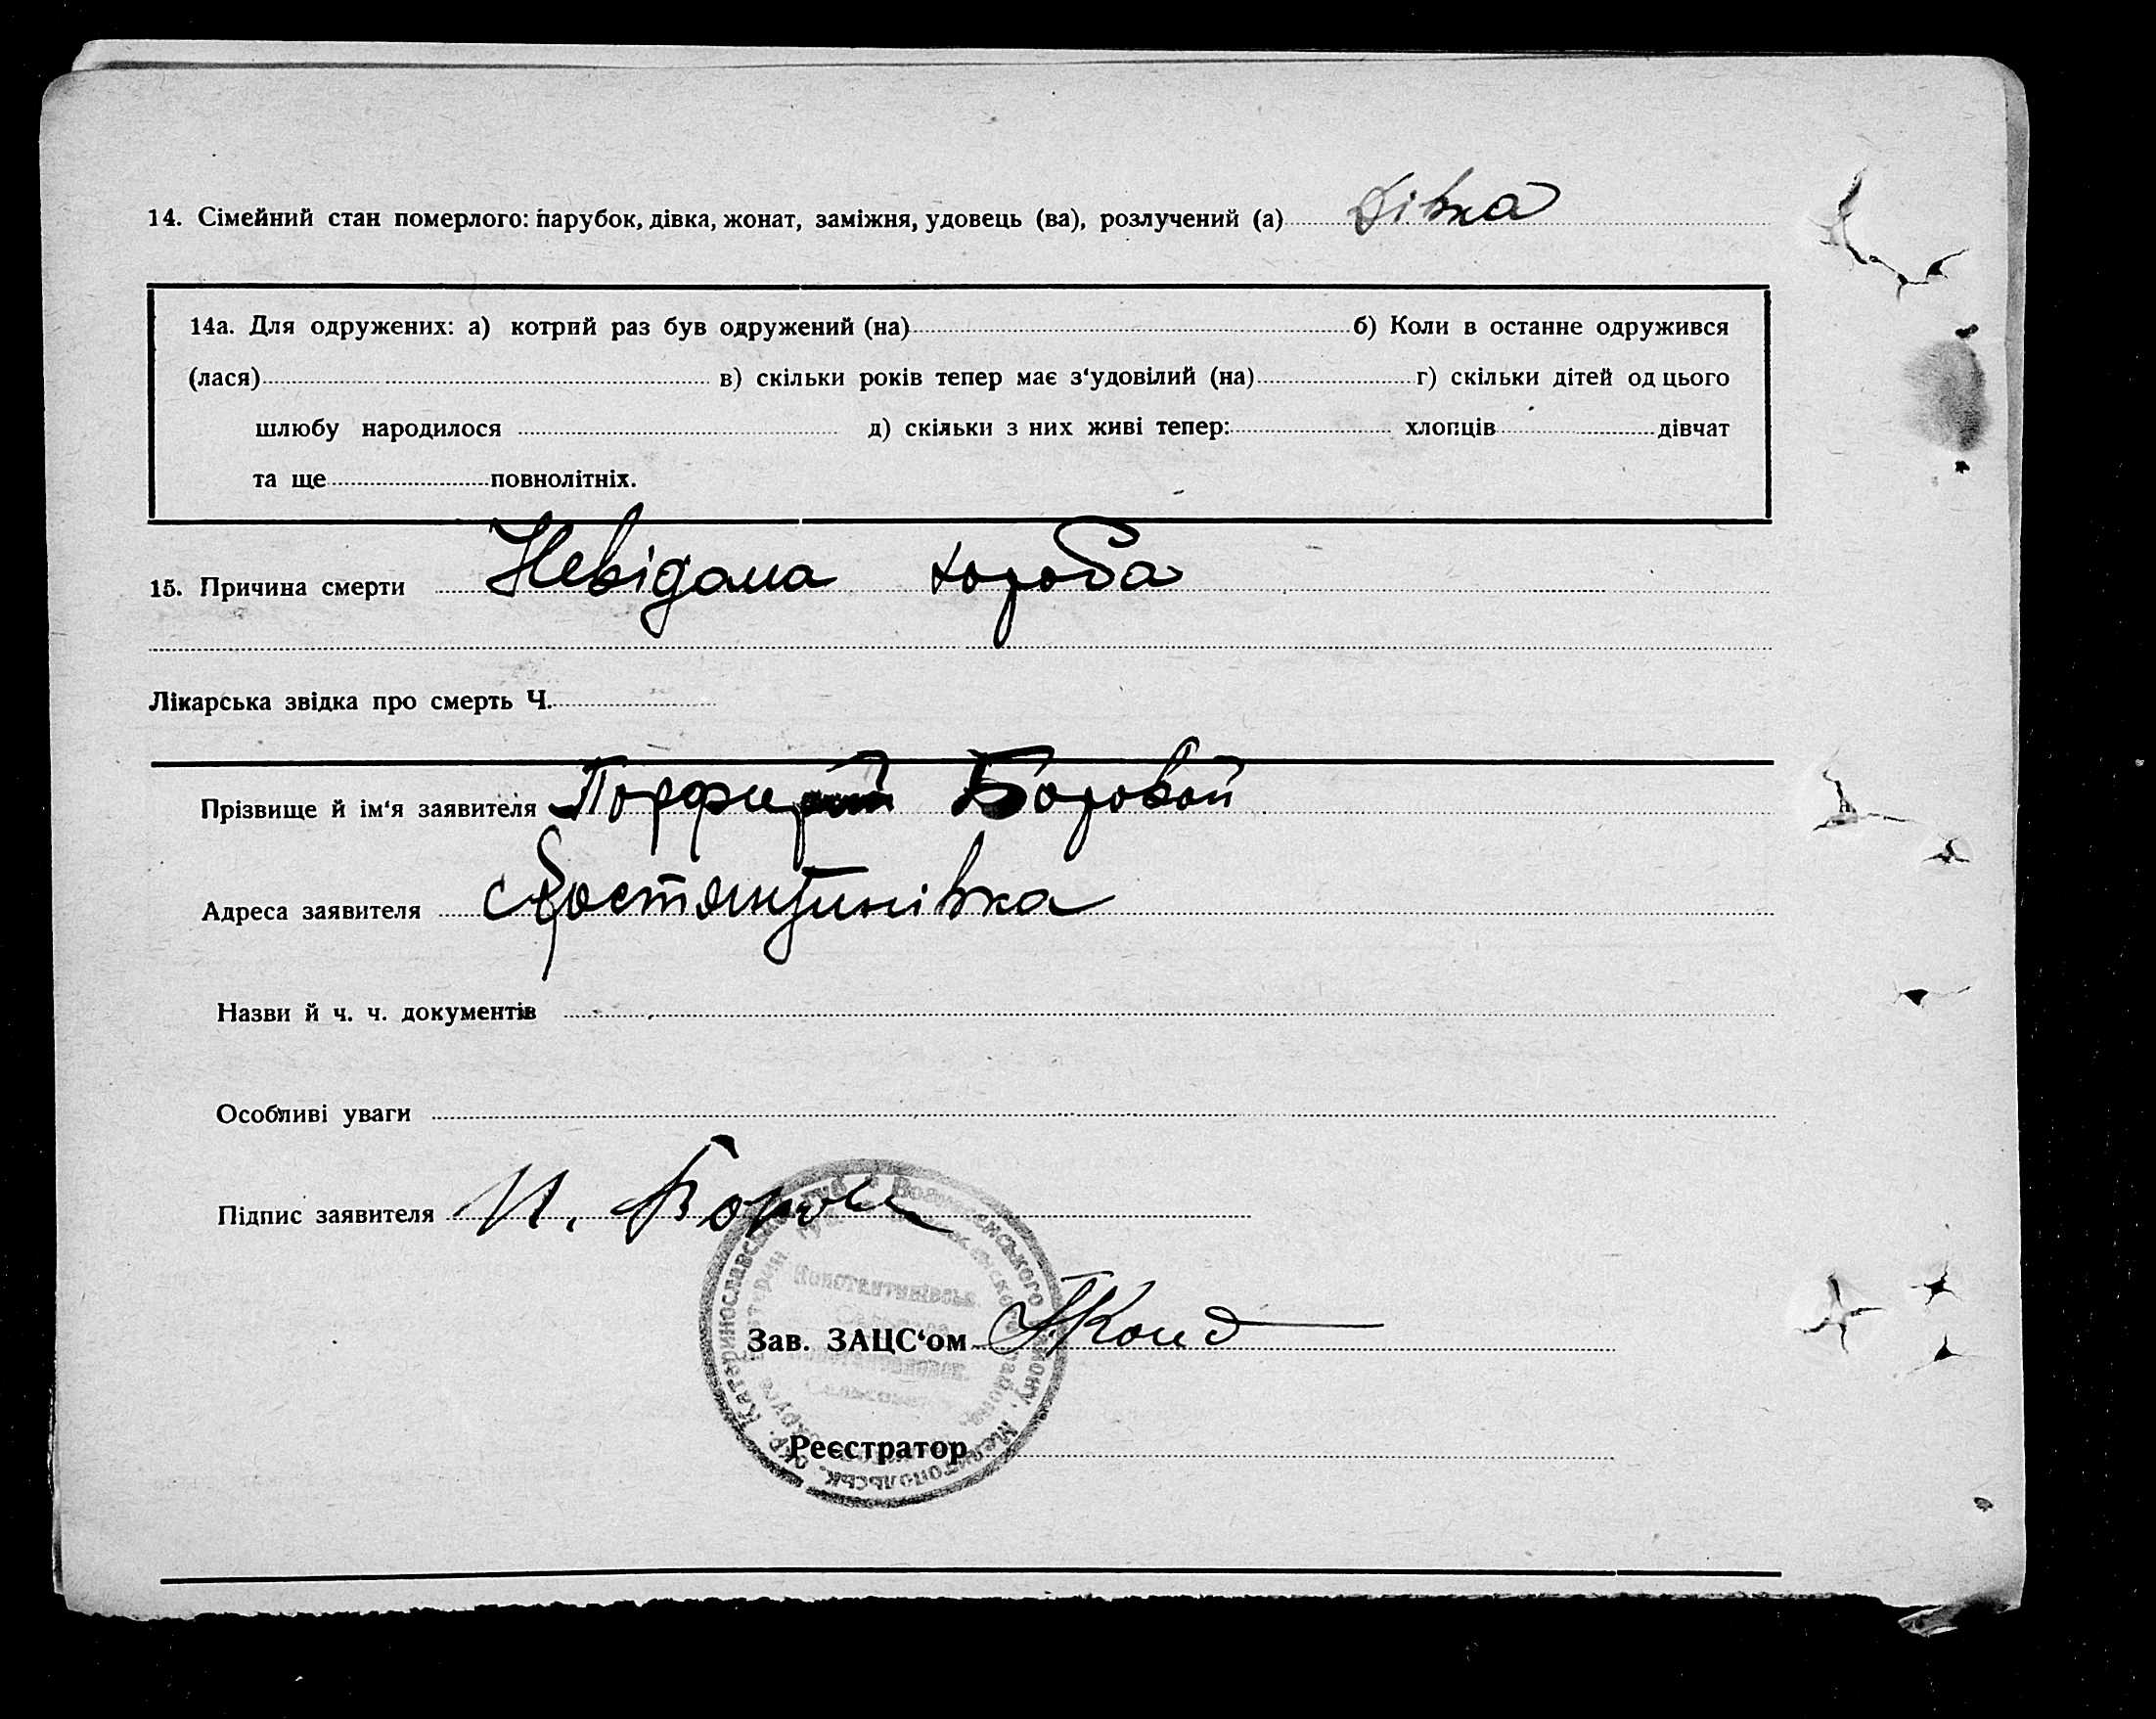 14. Сімейний стан померлого: парубок, дівка, жонат, заміжня, удовець (ва), розлучений (а) дівка
14а. Для одружених: а) котрий раз був одружений (на) б) Коли в останне одружився
(лася) в) скільки років тепер має з‘удовілий (на) г) скільки дітей од цього
шлюбу народилося д) скільки з них живі тепер: хлопців дівчат
та ще повнолітніх.
15. Причина смерти Невідома хороба
Лікарська звідка про смерть Ч.
Прізвище й ім‘я заявителя Порфирий Боровой
Адреса заявителя с Костянтинівка
Назви й ч. ч. документів
Особливі уваги
Підпис заявителя П. Боров
Константинівськ.
Зав. ЗАЦС‘ом
Реєстратор
Катеринославськ. Вознесенського району, Мелитопольськ. окр.